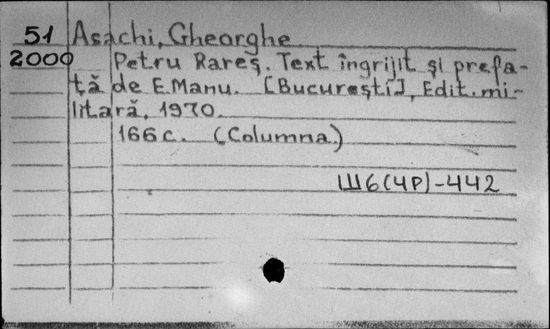 51 Asachi, Gheorghe
2000 Petru Rareş. Text îngrijit şi prefa-
ţă de E. Manu. [Bucureşti], Edit. mi-
litară, 1970.
166 с. (Columna.)
Ш6(4Р)-442